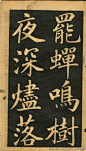 罷蟬鳴樹
夜深燼落